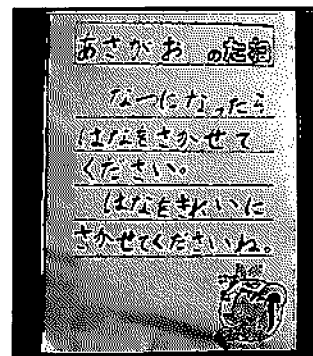 あさがおの
なつになったら
はなをさかせて
ください。
はなをきれいに
さかせてくださいね。